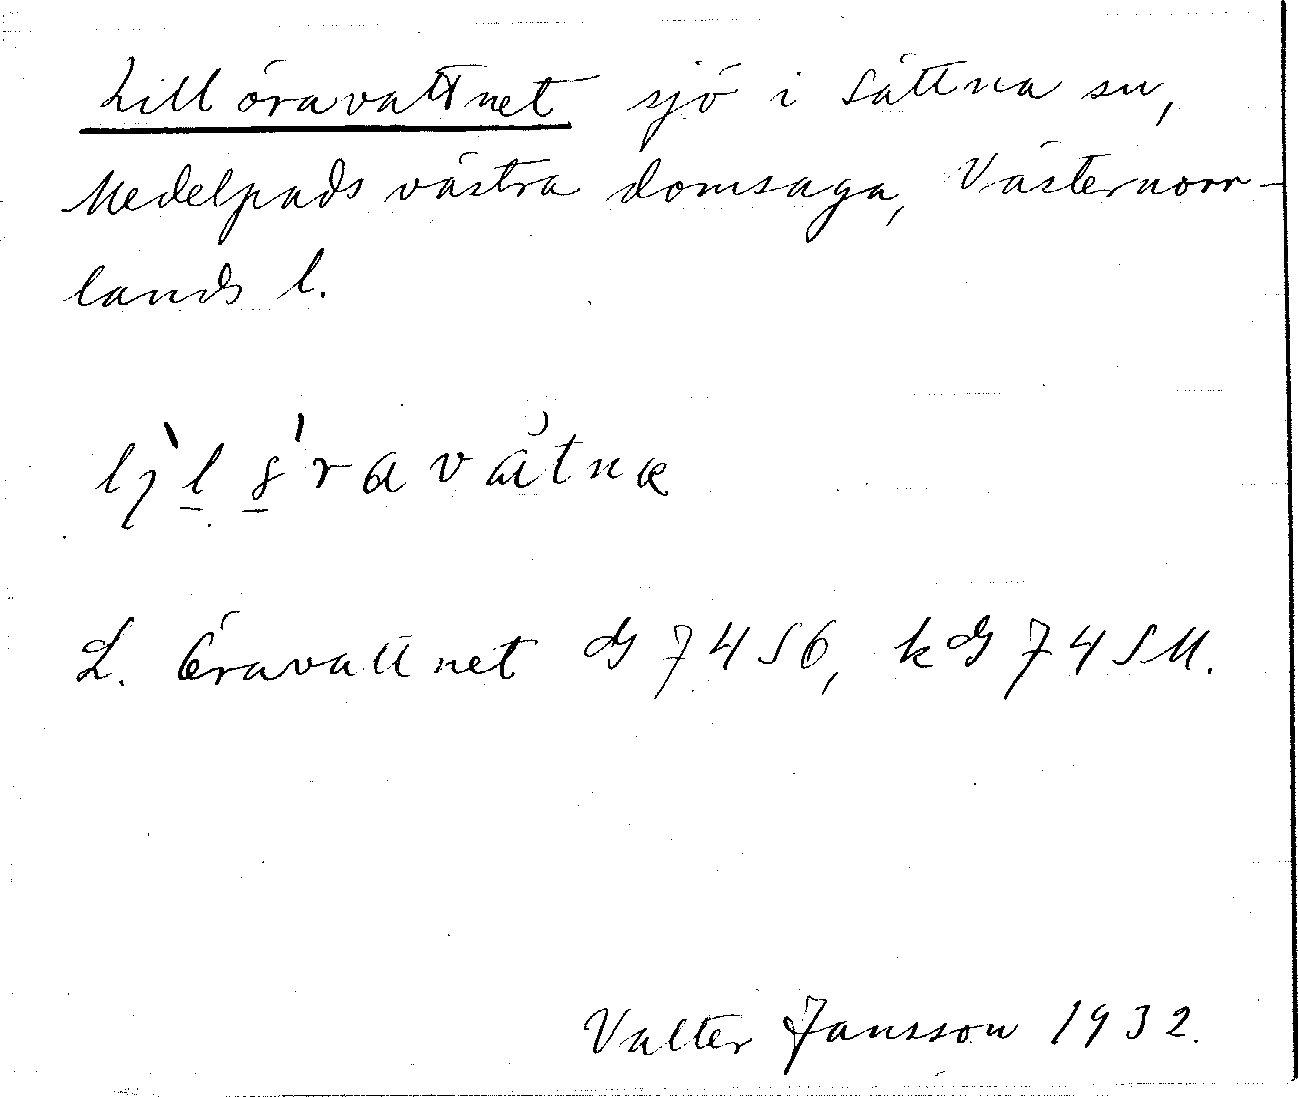 Lillöravattnet sjö i Sättna sn,
Medelpads västra domsaga, Västernorr-
lands l.
L. Öravattnet dg 74 SO, kdg 74 SM.
Valter Jansson 1932.